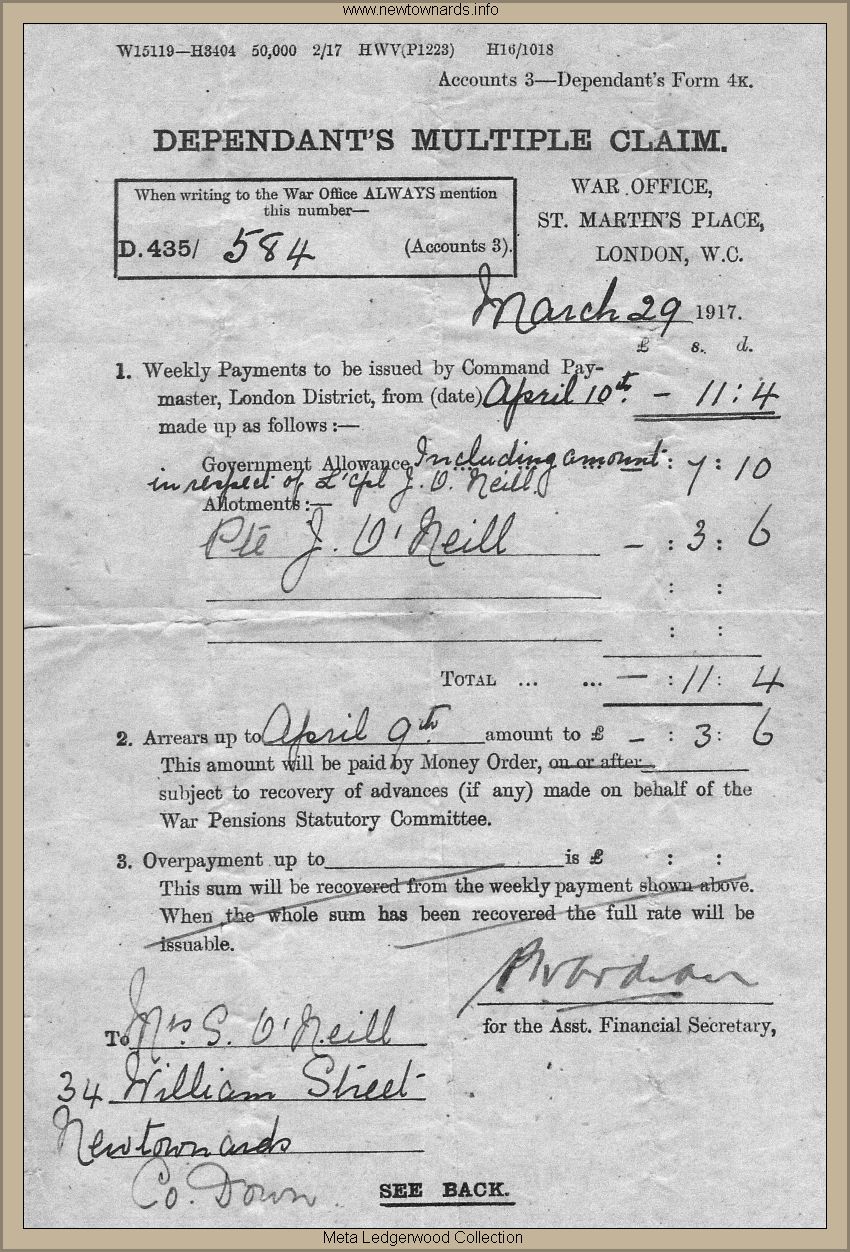 www.newtownards.info
W15119—H3404 50,000 2/17 HWV(P1223) H16/1018
Accounts 3—Dependant's Form 4K.
DEPENDANT'S MULTIPLE CLAIM.
When writing to the War Office ALWAYS mention
this number—
D.435/ 584 (Accounts 3).
WAR OFFICE,
ST. MARTIN'S PLACE,
LONDON, W.C.
March 29 1917.
£ s. d.
1. Weekly Payments to be issued by Command Pay-
master, London District, from (date) April 10th. – 11 : 4
made up as follows :—
Government Allowance Including amount : 7 : 10
in respect of L'Cpl J. O'Neill.
Allotments :—
Pte J. O'Neill – : 3 : 6
: :
: :
TOTAL ... ... – : 11 : 4
2. Arrears up to April 9th. amount to £ – : 3 : 6
This amount will be paid by Money Order, on or after
subject to recovery of advances (if any) made on behalf of the
War Pensions Statutory Committee.
3. Overpayment up to is £ : :
This sum will be recovered from the weekly payment shown above.
When the whole sum has been recovered the full rate will be
issuable.
for the Asst. Financial Secretary,
To Mrs. S. O'Neill
34 William Street
Newtownards
Co. Down
SEE BACK.
Meta Ledgerwood Collection